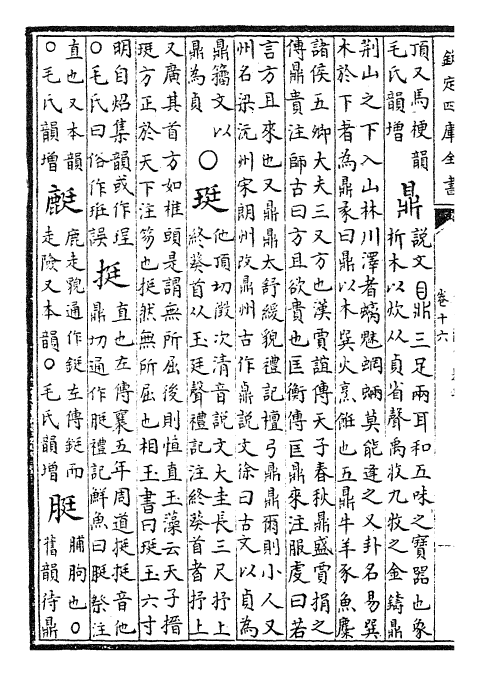 欽定四庫全書
卷十六
頂又馬梗韻
毛氏韻增
鼎
說文鼎三足兩耳和五味之寶器也象
析木以炊从貞省聲禹收九牧之金鑄鼎
荆山之下入山林川澤者螭魅蝄蜽莫能逢之又卦名易巽
木於下者為鼎彖曰鼎以木巽火烹飪也五鼎牛羊豕魚麋
諸侯五卿大夫三又方也漢賈誼傳天子春秋鼎盛賈捐之
傳鼎貴注師古曰方且欲貴也匡衡傳匡鼎來注服虔曰若
言方且來也又鼎鼎大舒緩貌禮記檀弓鼎鼎爾則小人又
州名梁沅州宋朗州改鼎州古作鼑說文徐曰古文以貞為
鼎籀文以
鼎為貞
○珽
他頂切澂次清音說文大圭長三尺抒上
終葵首从玉廷聲禮記注終葵首者抒上
又廣其首方如椎頭是謂無所屈後則恒直玉藻云天子搢
珽方正於天下注笏也挺然無所屈也相玉書曰珽玉六寸
明自炤集韻或作珵
○毛氏曰俗作誤
挺
直也左傳襄五年周道挺挺音他
鼎切通作脡禮記鮮魚曰脡祭注
直也又本韻
○毛氏韻增
鹿走貌通作鋌左傳鋌而
走險又本韻○毛氏韻增
脡
脯朐也○
舊韻待鼎